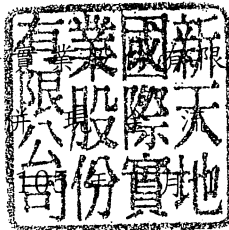 新天地
國際實
業股份
有限公司